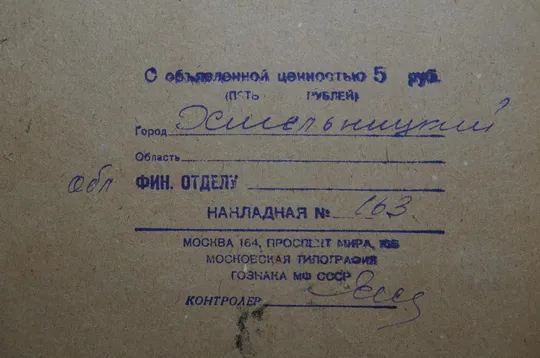 С объявленной ценностью 5 руб.
(ПЯТЬ РУБЛЕЙ)
Город Хмельницкий
Область
обл ФИН. ОТДЕЛУ
НАКЛАДНАЯ № 163
МОСКВА 164, ПРОСПЕКТ МИРА, 105
МОСКОВСКАЯ ТИПОГРАФИЯ
ГОЗНАКА МФ СССР
КОНТРОЛЕР